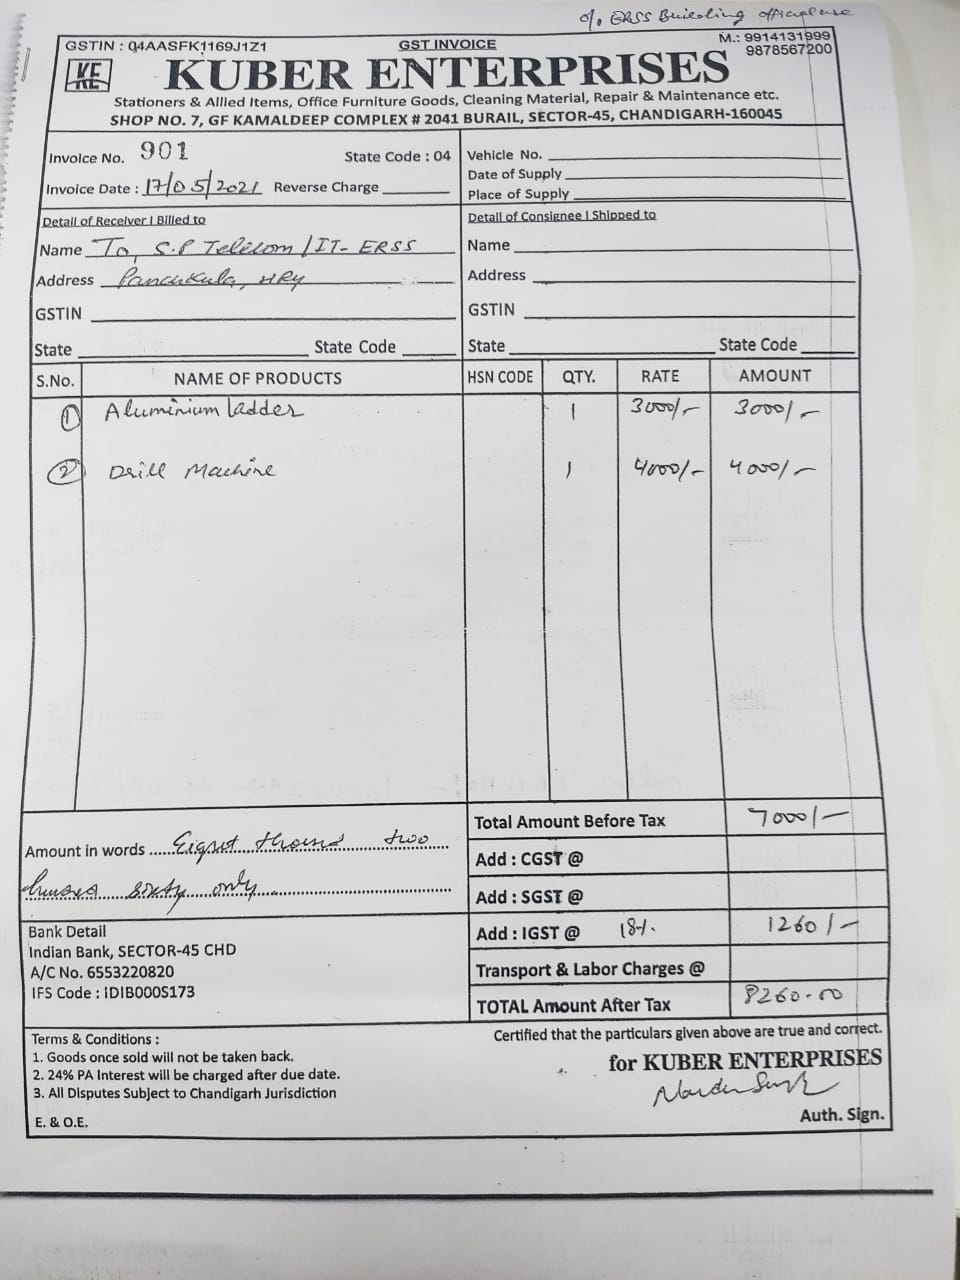 o/o ERSS Building office use
GSTIN : 04AASFK1169J1Z1
GST INVOICE
M.: 9914131999
9878567200
KE
KUBER ENTERPRISES
Stationers & Allied Items, Office Furniture Goods, Cleaning Material, Repair & Maintenance etc.
SHOP NO. 7, GF KAMALDEEP COMPLEX # 2041 BURAIL, SECTOR-45, CHANDIGARH-160045
Invoice No. 901 State Code : 04
Invoice Date : 17/05/2021 Reverse Charge
Vehicle No.
Date of Supply
Place of Supply
Detail of Receiver | Billed to
Name To, S.P Telecom/IT- ERSS
Address Panchkula, HRY
GSTIN
State State Code
Detail of Consignee | Shipped to
Name
Address
GSTIN
State State Code
S.No. NAME OF PRODUCTS HSN CODE QTY. RATE AMOUNT
1 Aluminium ladder 1 3000/- 3000/-
2 Drill Machine 1 4000/- 4000/-
Total Amount Before Tax 7000/-
Add : CGST @
Add : SGST @
Add : IGST @ 18% 1260/-
Transport & Labor Charges @
TOTAL Amount After Tax 8260.00
Amount in words ..... Eight thound two
hundred sixty only
Bank Detail
Indian Bank, SECTOR-45 CHD
A/C No. 6553220820
IFS Code : IDIB000S173
Terms & Conditions :
1. Goods once sold will not be taken back.
2. 24% PA Interest will be charged after due date.
3. All Disputes Subject to Chandigarh Jurisdiction
E. & O.E.
Certified that the particulars given above are true and correct.
for KUBER ENTERPRISES
Auth. Sign.